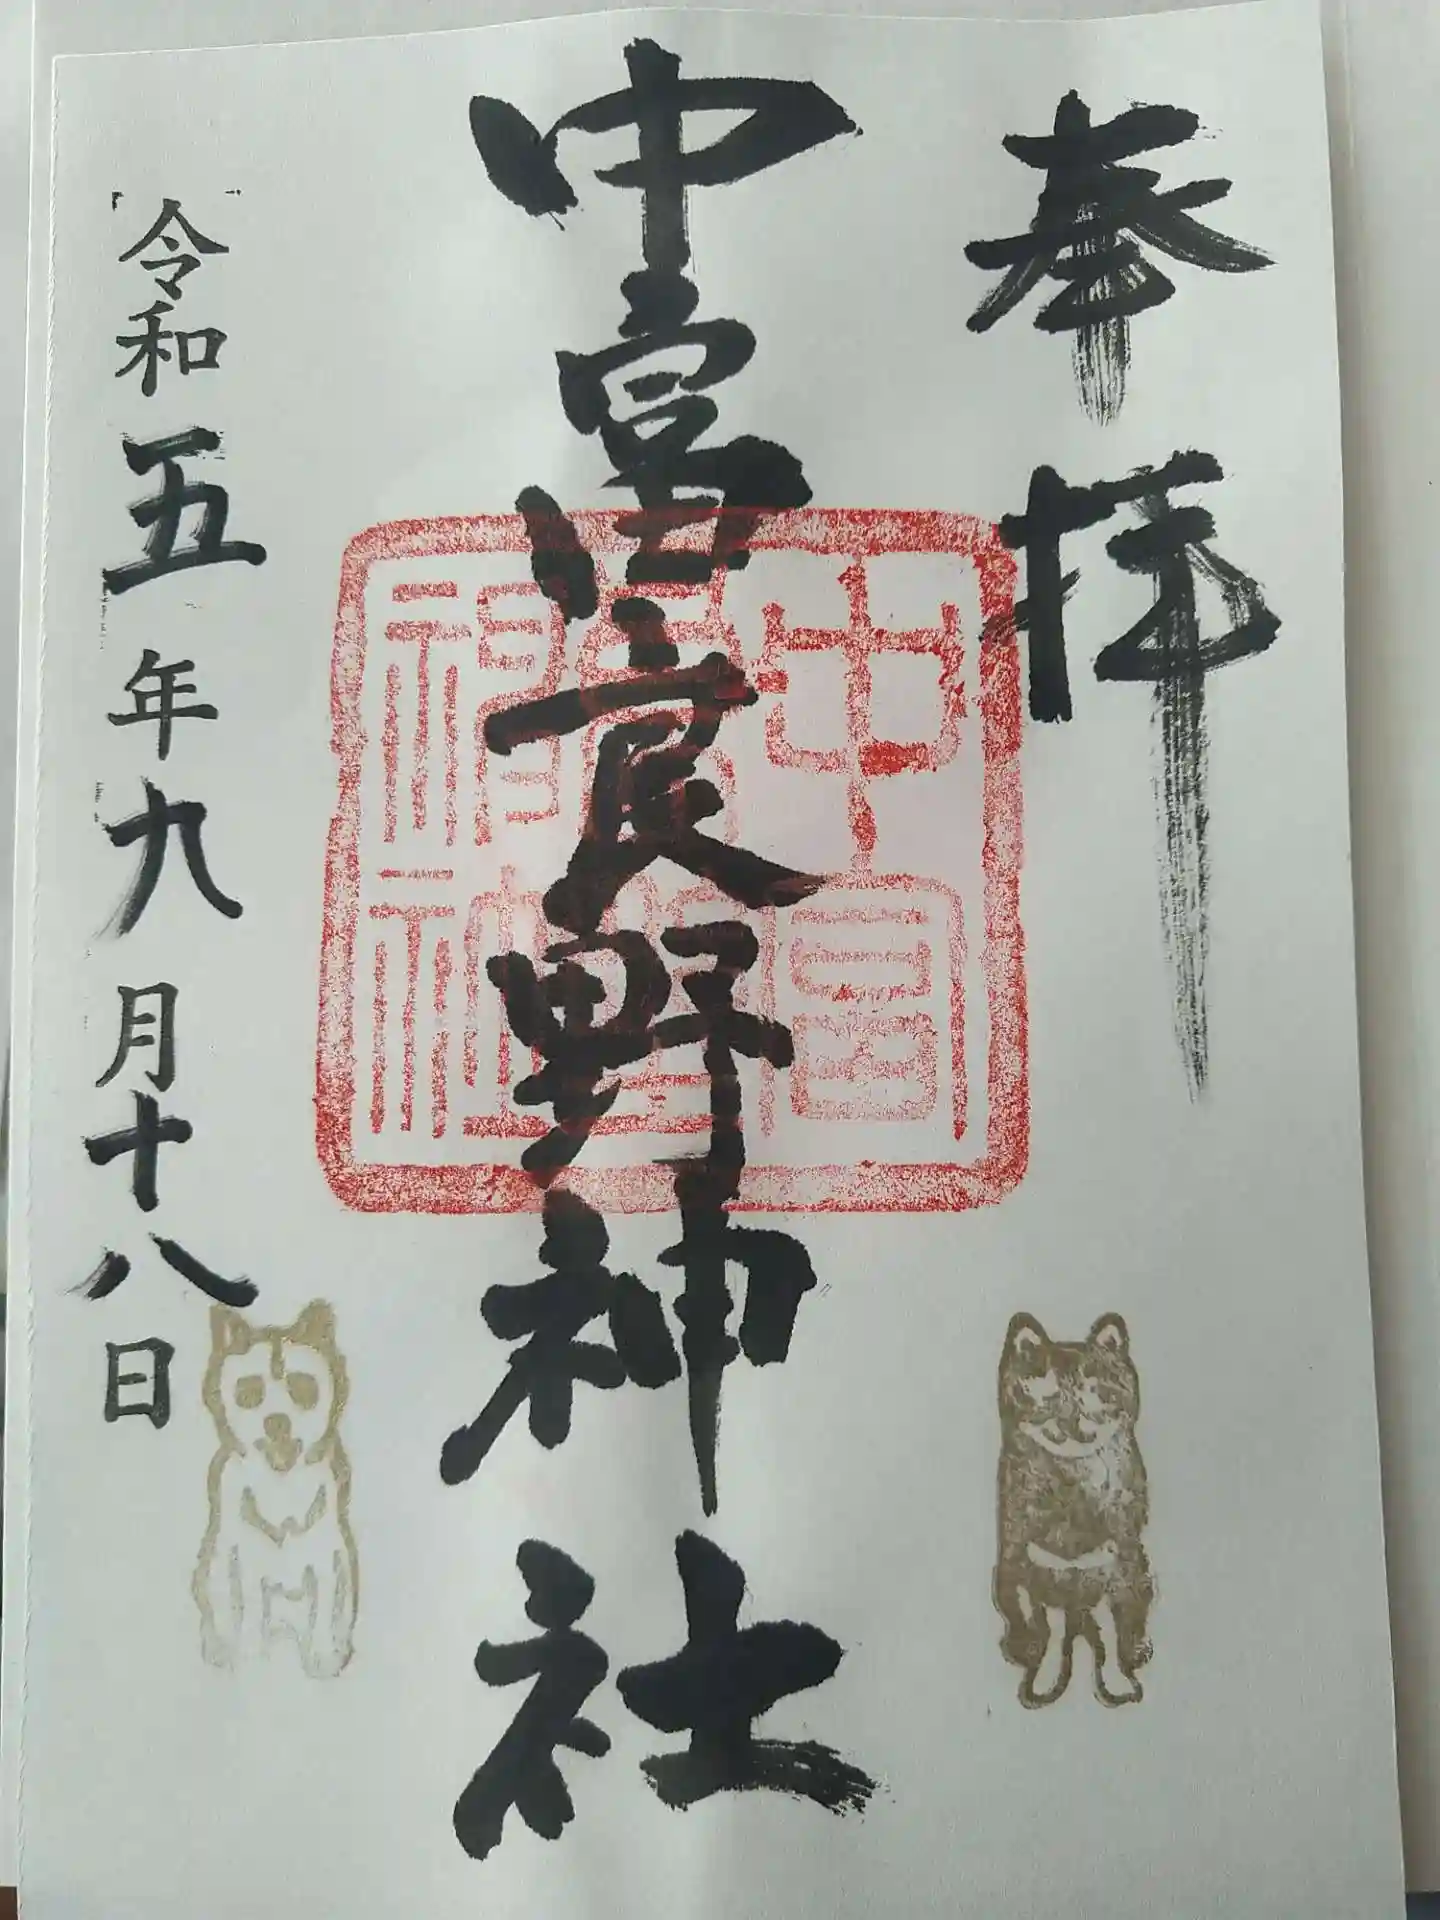 奉拝
中富良野神社
中富
良野
神社
令和五年九月十八日